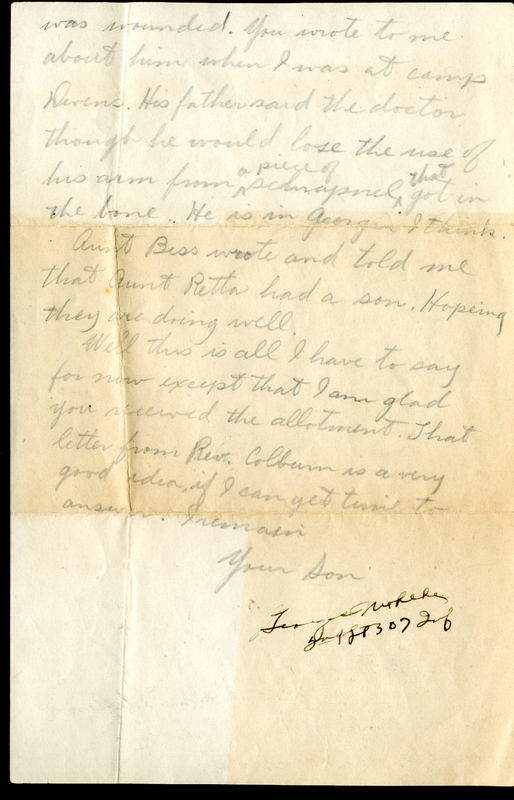 was wounded. You wrote to me
about him when I was at camp
Devens. His father said the doctor
though he would lose the use of
his arm from a piece of schrapnel that got in
the bone. He is in Georgia I think.
Aunt Bess wrote and told me
that Aunt Retta had a son. Hopeing
they are doing well.
Well this is all I have to say
for now except that I am glad
you received the allotment. That
letter from Rev. Colburn is a very
good idea, if I can get time to
answer. I remain
Your Son
George
307 Inf